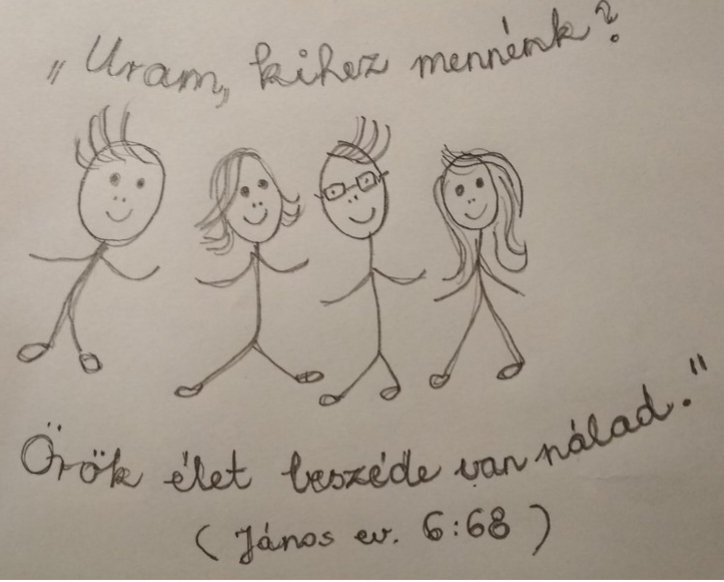 „Uram, kihez mennénk?
Örök élet beszéde van nálad."
(János ev. 6:68)